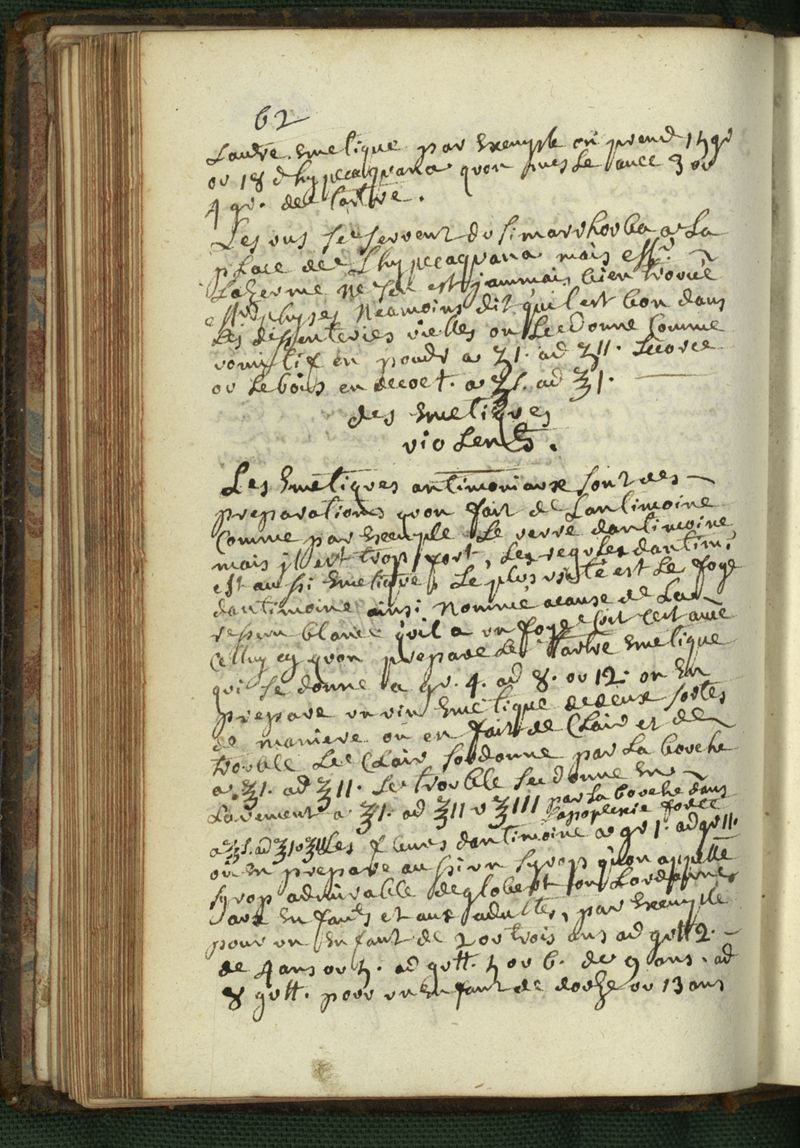 62
Lautre Emetique par Exemple on prend 15 gr
ou 18 dhypecaquana quon mesle avec 3 ou
4 gr. de tartre.
Les uns se servent du simarrhouba a La
place de Lhypecaquana mais
Lazerme ne sen est jammais bien trouvé
neamoins dit quil est bon dans
Les dissenteries vielles on Le donne Comme
vomitif en poudr a ʒ1. ad ʒ11. Lecorce
ou Le bois en decoct. a ad ℥1.
des Emetiques
violents.
Les Emetiques antimoniaux sont des
preparations quon fait de Lantimoine
Comme par Exemple Le verre dantimoine
mais il est trop fort, Les regules dantim.
est aussi Emetique, Le plus usité est Le foye
dantimoine ainsi nommé acause de La
blance quil a un foye Cuit Cest avec
Celluy cy quon prepare Le Tartre Emetique
qui Se donne a gr. 4. ad 8. ou 12. on En
prepare un vin Emetique de deux sortes
de maniere on en fait de Clair et de
trouble Le Clair se donne par La bouche
a ℥1. ad ℥11. Le trouble se donne En
Lavement a ℥1. ad ℥11 ou ℥111 par La bouche dans
Lapoplexie forte
a ad ℥1 ou ℥11 Les fleurs dantimoine a gr 1. ad gr 11.
on En prepare aussi un syrop quon appelle
syrop admirable de glober on Lordonne
aux Enfants et aux adultes, par Exemple
pour un Enfant de 2 ou trois ans ad gutt 2.
de 4 ans ou 5. ad gutt. 5 ou 6. de 9 ans. ad
8 gutt. pour un Enfant de douze ou 13 ans